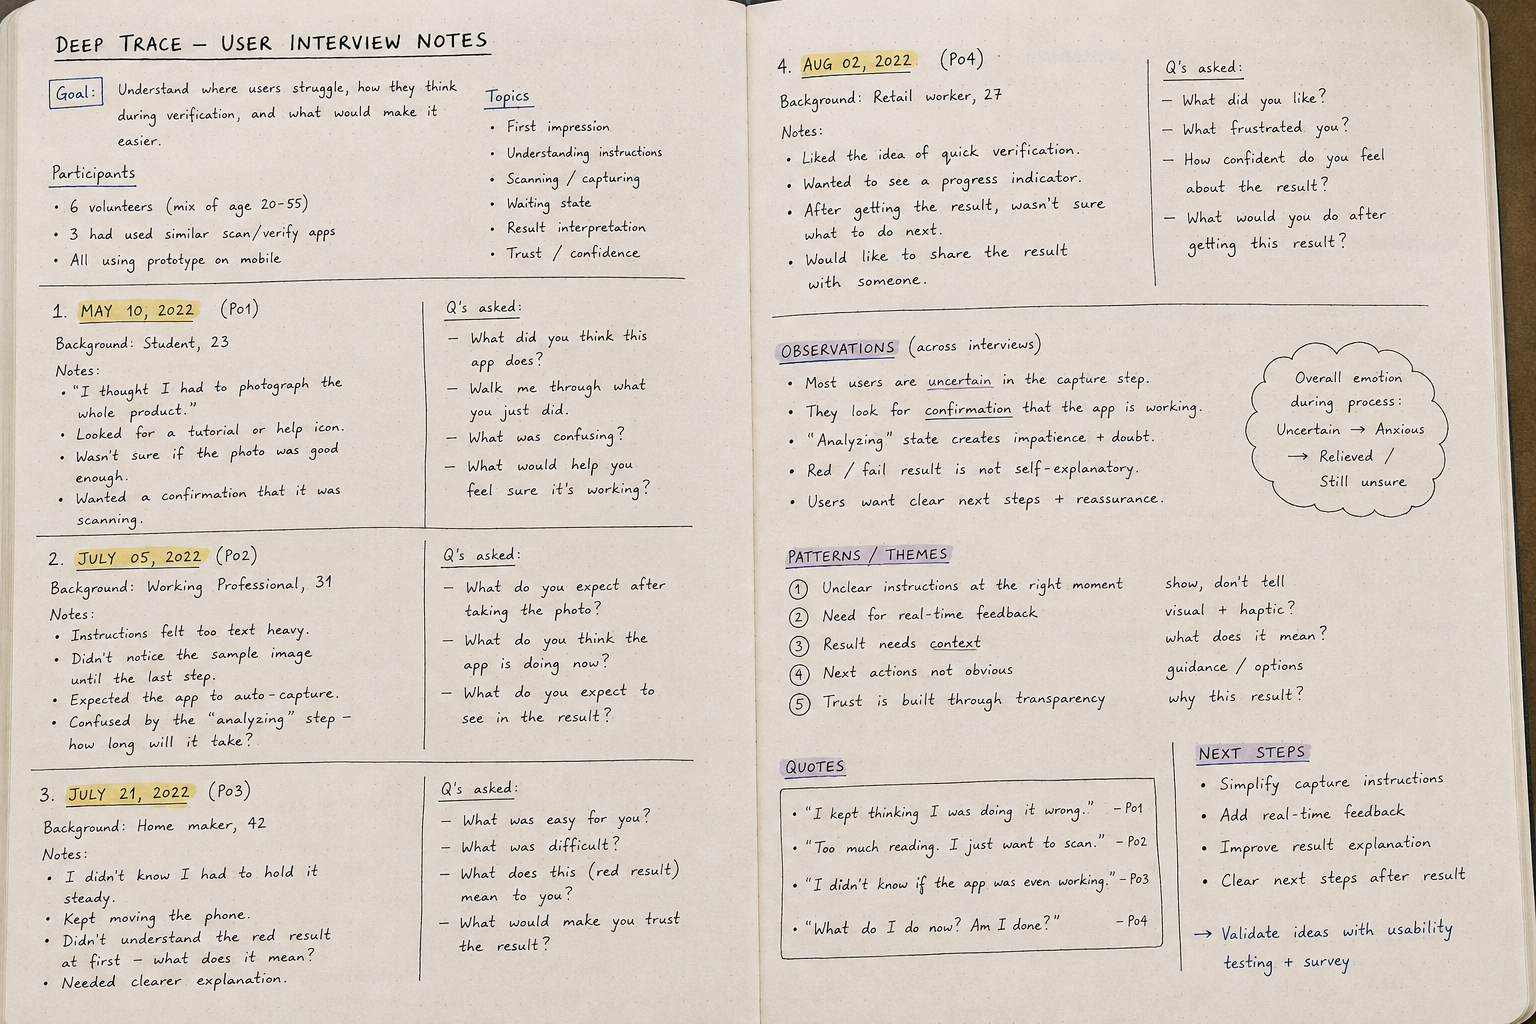 DEEP TRACE – USER INTERVIEW NOTES
Goal:
Understand where users struggle, how they think
during verification, and what would make it
easier.
Participants
• 6 volunteers (mix of age 20-55)
• 3 had used similar scan/verify apps
• All using prototype on mobile
Topics
• First impression
• Understanding instructions
• Scanning / capturing
• Waiting state
• Result interpretation
• Trust / confidence
1. MAY 10, 2022 (P01)
Background: Student, 23
Notes:
• "I thought I had to photograph the
whole product."
• Looked for a tutorial or help icon.
• Wasn't sure if the photo was good
enough.
• Wanted a confirmation that it was
scanning.
Q's asked:
– What did you think this
app does?
– Walk me through what
you just did.
– What was confusing?
– What would help you
feel sure it's working?
2. JULY 05, 2022 (P02)
Background: Working Professional, 31
Notes:
• Instructions felt too text heavy.
• Didn't notice the sample image
until the last step.
• Expected the app to auto-capture.
• Confused by the "analyzing" step –
how long will it take?
Q's asked:
– What do you expect after
taking the photo?
– What do you think the
app is doing now?
– What do you expect to
see in the result?
3. JULY 21, 2022 (P03)
Background: Home maker, 42
Notes:
• I didn't know I had to hold it
steady.
• Kept moving the phone.
• Didn't understand the red result
at first – what does it mean?
• Needed clearer explanation.
Q's asked:
– What was easy for you?
– What was difficult?
– What does this (red result)
mean to you?
– What would make you trust
the result?
4. AUG 02, 2022 (P04)
Background: Retail worker, 27
Notes:
• Liked the idea of quick verification.
• Wanted to see a progress indicator.
• After getting the result, wasn't sure
what to do next.
• Would like to share the result
with someone.
Q's asked:
– What did you like?
– What frustrated you?
– How confident do you feel
about the result?
– What would you do after
getting this result?
OBSERVATIONS (across interviews)
• Most users are uncertain in the capture step.
• They look for confirmation that the app is working.
• "Analyzing" state creates impatience + doubt.
• Red / fail result is not self-explanatory.
• Users want clear next steps + reassurance.
Overall emotion
during process:
Uncertain → Anxious
→ Relieved /
Still unsure
PATTERNS / THEMES
① Unclear instructions at the right moment show, don't tell
② Need for real-time feedback visual + haptic?
③ Result needs context what does it mean?
④ Next actions not obvious guidance / options
⑤ Trust is built through transparency why this result?
QUOTES
• "I kept thinking I was doing it wrong." – P01
• "Too much reading. I just want to scan." – P02
• "I didn't know if the app was even working." – P03
• "What do I do now? Am I done?" – P04
NEXT STEPS
• Simplify capture instructions
• Add real-time feedback
• Improve result explanation
• Clear next steps after result
→ Validate ideas with usability
testing + survey